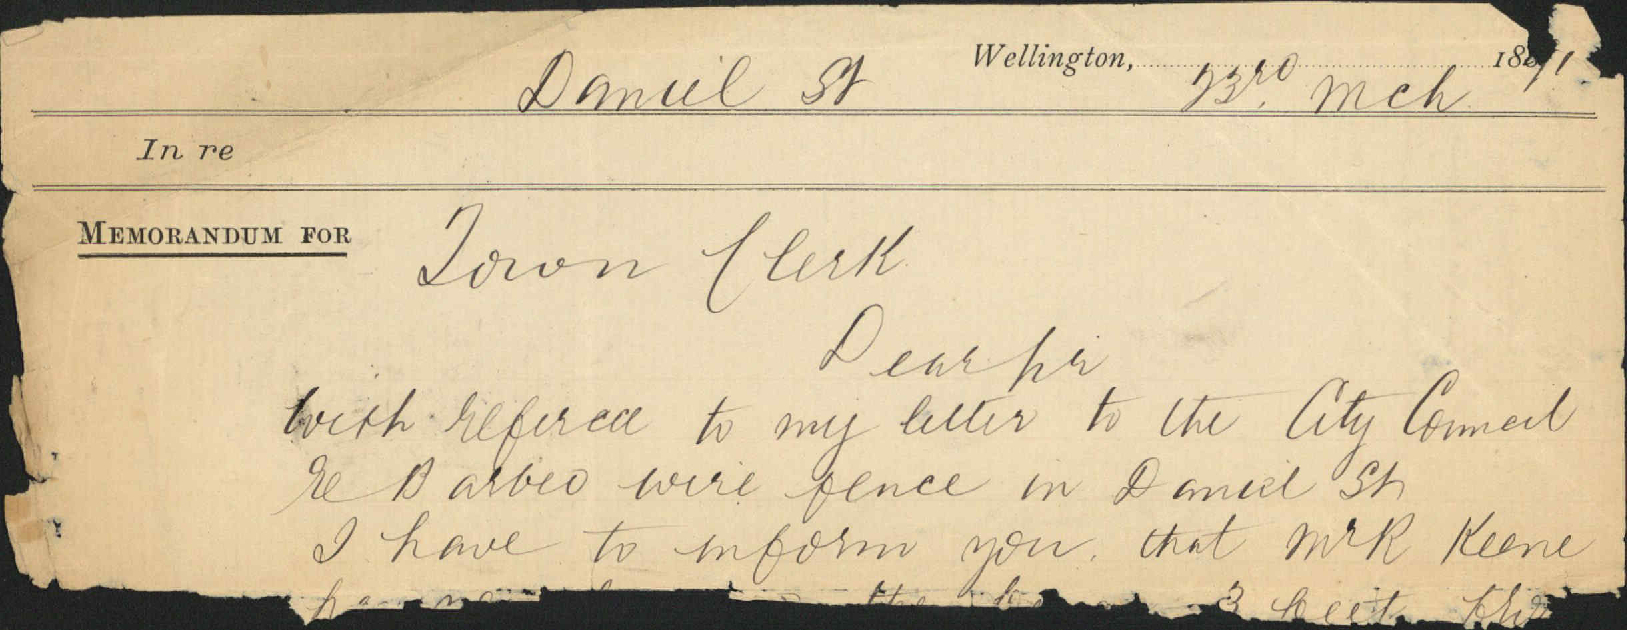 Wellington, 23rd Mch 1891
Daniel St
In re
MEMORANDUM FOR
Town Clerk
Dear Sir
With referce to my letter to the City Council
re Barbed wire fence in Daniel St
I have to inform you. that Mr R Keene
the 3 feet